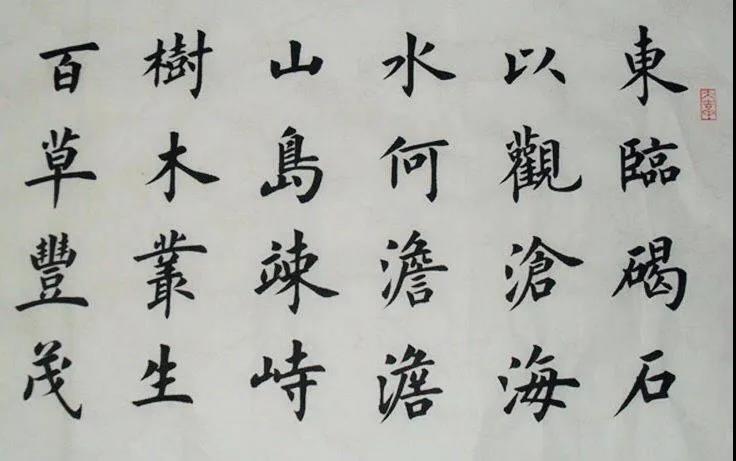 東臨碣石
以觀滄海
水何澹澹
山島竦峙
樹木叢生
百草豐茂